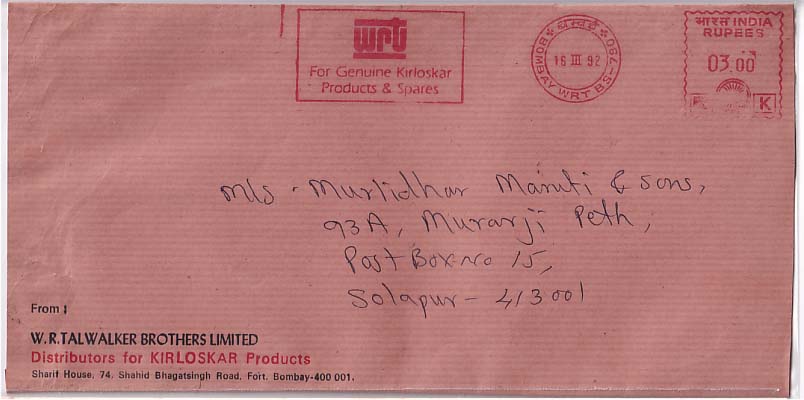 wrt
For Genuine Kirloskar
Products & Spares
बम्बई
BOMBAY WRT BS-790
16 III 92
भारत INDIA
RUPEES
03.00
K
M/s - Murlidhar Maruti & Sons,
93A, Murarji Peth,
Post Box no 15,
Solapur - 413001
From :
W.R.TALWALKER BROTHERS LIMITED
Distributors for KIRLOSKAR Products
Sharif House, 74, Shahid Bhagatsingh Road, Fort, Bombay-400 001.